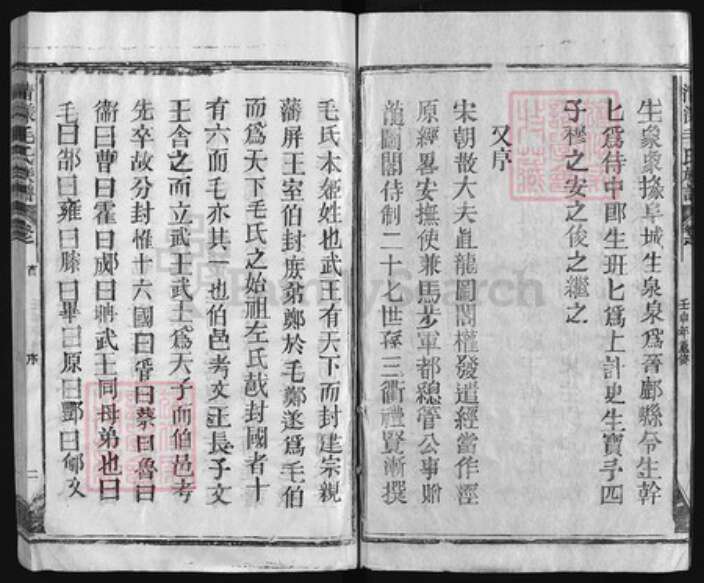 生象衆掾阜城生泉泉爲晉鄮縣令生幹
匕爲侍中郎生班匕爲上計史生寶子四
子穆之安之俊之繼之
又序
宋朝散大夫眞龍圖閣權發遣經當作涇
原經畧安撫使兼馬步軍都總管公事贈
龍圖閣待制二十七世孫三衢禮賢漸撰
毛氏本姬姓也武王有天下而封建宗親
藩屏王室伯封庶弟鄭於毛鄭遂爲毛伯
而爲天下毛氏之始祖左氏載封國者十
有六而毛亦其一也伯邑考文王長子文
王舍之而立武王武王爲天子而伯邑考
先卒故分封惟十六國曰管曰蔡曰魯曰
衞曰曹曰霍曰郕曰聃武王同母弟也曰
毛曰郜曰雍曰滕曰畢曰原曰酆曰郇文
毛氏族譜
序
二
FamilySearch